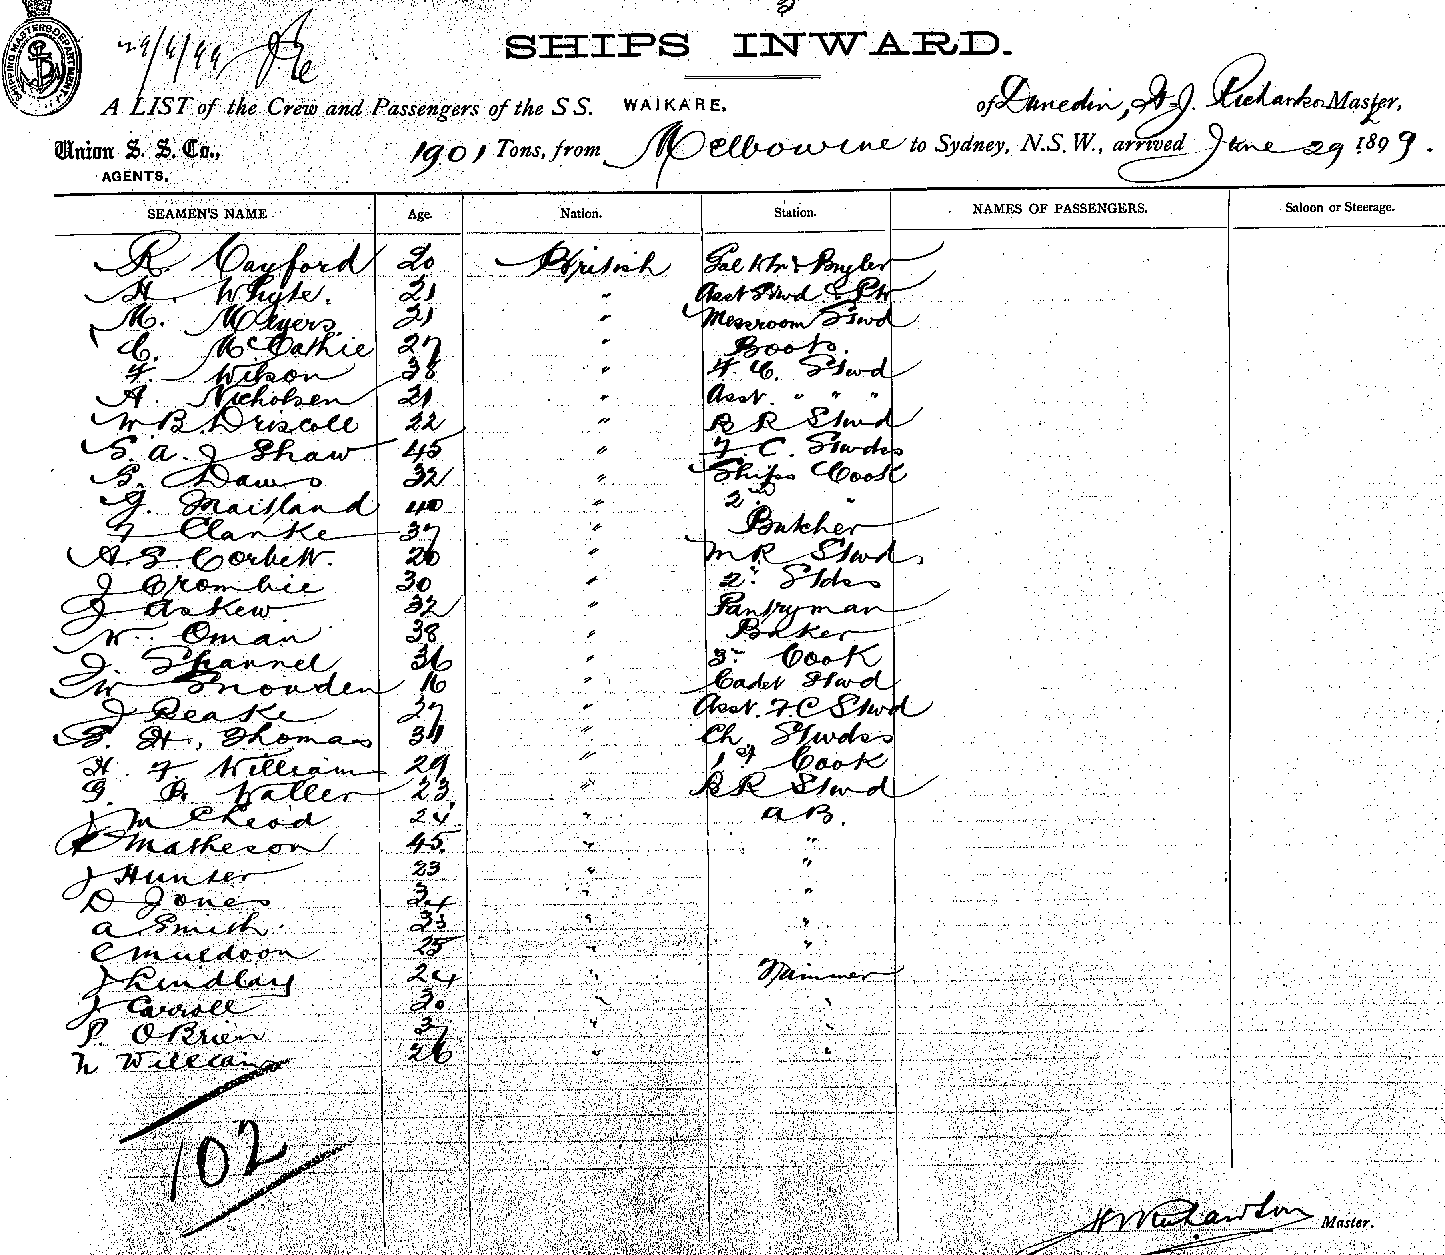 SHIPPING MASTERS DEPARTMENT
29/6/99
SHIPS INWARD.
A LIST of the Crew and Passengers of the S S. WAIKARE. of Dunedin, Master,
Union S. S. Co., 1901 Tons, from Melbourne to Sydney, N.S.W., arrived June 29 1899.
AGENTS.
SEAMEN'S NAME Age. Nation. Station. NAMES OF PASSENGERS. Saloon or Steerage.
R Cayford 20 British & Bugler
H. Whyte. 21 " Asst Stwd &
M. Meyers. 21 " Messroom Stwd
C. McCathie 27 " Boots.
F. Wilson 38 " F. C. Stwd
A. Nicholsen 21 " Asst. " " "
W. B. Driscoll 22 " B R Stwd
S. A. J Shaw 45 " F. C. Stwdss
G. Daws 32 " Ships Cook
J. Maitland 40 " 2nd "
F Clarke 37 " Butcher
A. E Corbett. 20 " M R Stwd
J Crombie 30 " 2. Stdss
J Askew 32 " Pantryman
W. Oman 38 " Baker
J. Shannel 36 " 3rd Cook
W Snowden 16 " Cadet Stwd
J Peake 27 " Asst. F C Stwd
B. H. Thomas 34 " Ch. Stwdss
H. F. William 29 " 1st Cook
G. B. Waller 23 " B R Stwd
J McCleod 24 " A B.
Matheson 45. " "
J Hunter 23 " "
D Jones 24 " "
A Smith. 23 " "
C Muldoon 25 " "
J Lindlay 24 " Trimmer
J Carroll 30 " "
P. O Brien 37 " "
William 26 " "
102
Richardson Master.